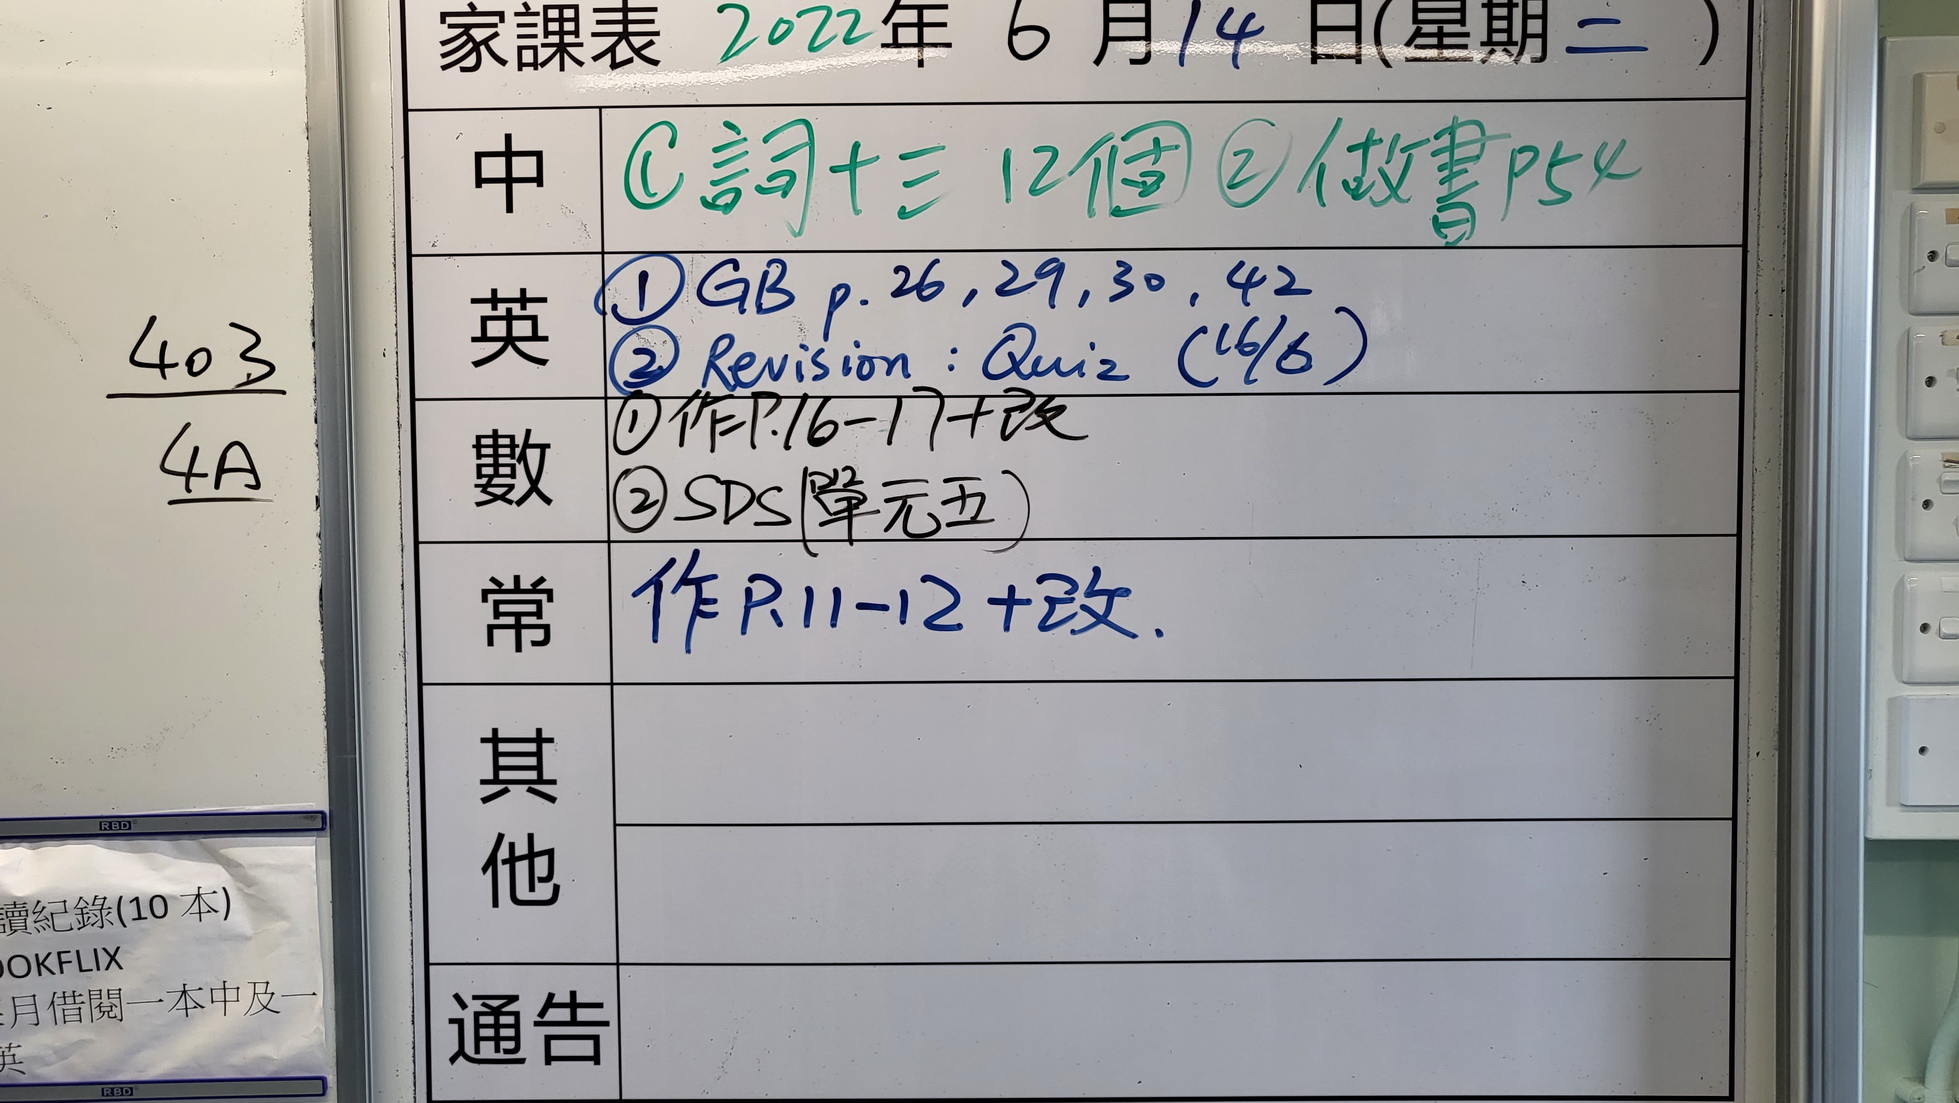 家課表 2022年 6 月14 日(星期二 )
中 ① 詞十三 12個 ② 做書 P54
英 ① GB p. 26, 29, 30, 42
② Revision : Quiz (16/6)
數 ①作P.16-17+改
②SDS(單元五)
常 作 P.11-12 +改.
其
他
通告
403
4A
RBD
讀紀錄(10 本)
OOKFLIX
月借閱一本中及一
英
RBD